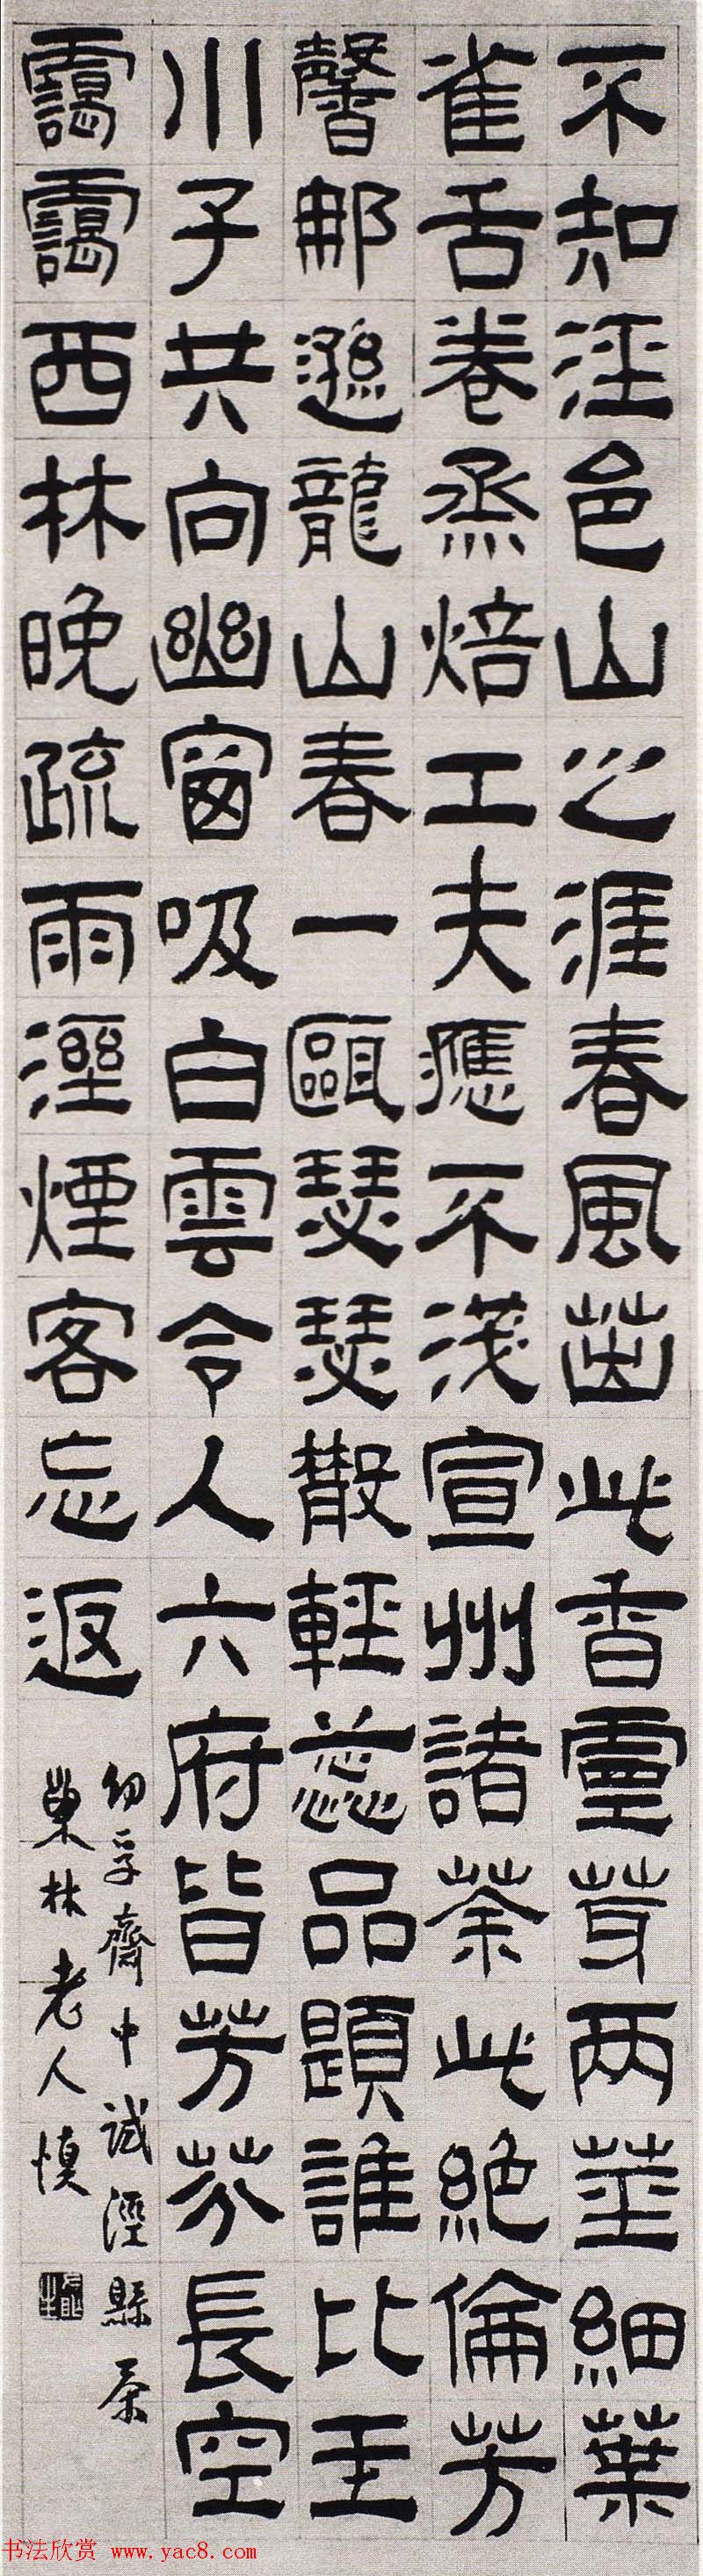 不知涇邑山之涯春風茁此香靈芽兩莖細葉
雀舌卷烝焙工夫應不淺宣州諸茶此絕倫芳
馨那遜龍山春一甌瑟瑟散輕蕊品題誰比玉
川子共向幽窗吸白雲令人六府皆芳芬長空
靄靄西林晚疏雨溼煙客忘返
幼孚齋中試涇縣茶
巢林老人慎
书法欣赏 www.yac8.com